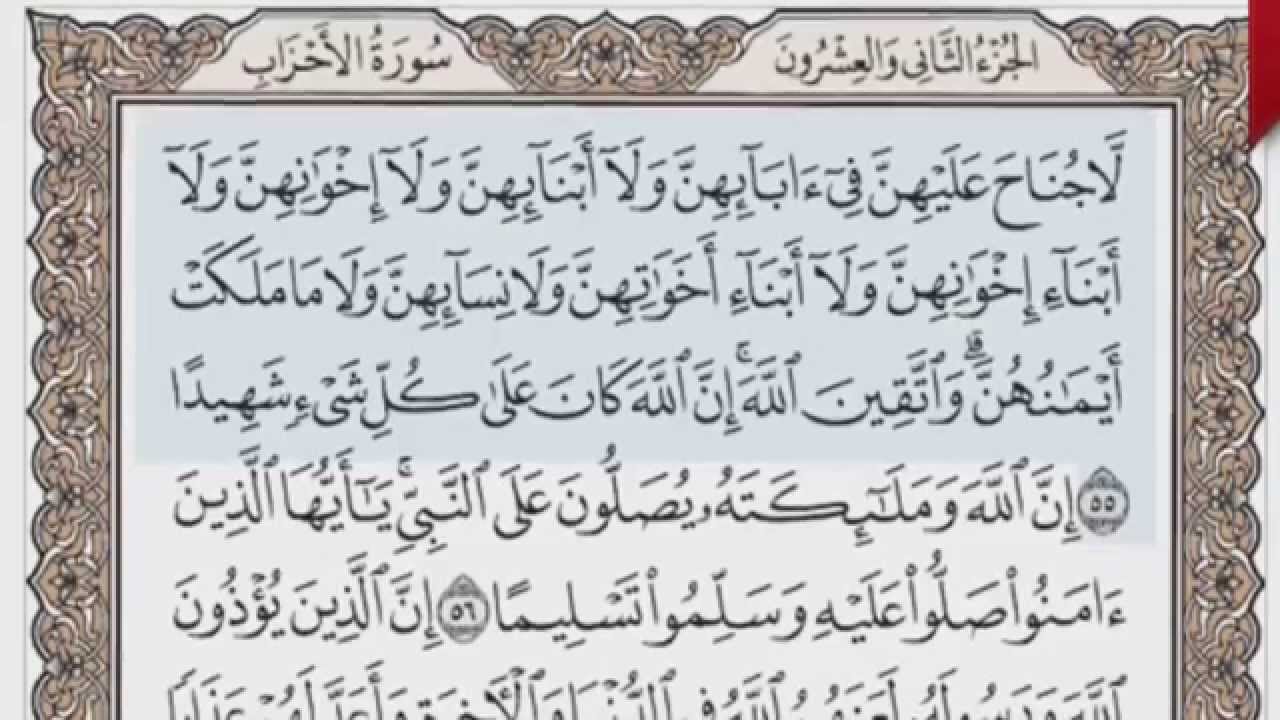 الجُزْءُ الثَّانِي وَالعِشْرُونَ
سُورَةُ الأَحْزَابِ
لَّا جُنَاحَ عَلَيْهِنَّ فِىٓ ءَابَآئِهِنَّ وَلَآ أَبْنَآئِهِنَّ وَلَآ إِخْوَٰنِهِنَّ وَلَآ
أَبْنَآءِ إِخْوَٰنِهِنَّ وَلَآ أَبْنَآءِ أَخَوَٰتِهِنَّ وَلَا نِسَآئِهِنَّ وَلَا مَا مَلَكَتْ
أَيْمَٰنُهُنَّ ۗ وَٱتَّقِينَ ٱللَّهَ ۚ إِنَّ ٱللَّهَ كَانَ عَلَىٰ كُلِّ شَىْءٍ شَهِيدًا
٥٥ إِنَّ ٱللَّهَ وَمَلَٰٓئِكَتَهُۥ يُصَلُّونَ عَلَى ٱلنَّبِىِّ ۚ يَٰٓأَيُّهَا ٱلَّذِينَ
ءَامَنُوا۟ صَلُّوا۟ عَلَيْهِ وَسَلِّمُوا۟ تَسْلِيمًا ٥٦ إِنَّ ٱلَّذِينَ يُؤْذُونَ
ٱللَّهَ وَرَسُولَهُۥ لَعَنَهُمُ ٱللَّهُ فِى ٱلدُّنْيَا وَٱلْءَاخِرَةِ وَأَعَدَّ لَهُمْ عَذَابًا